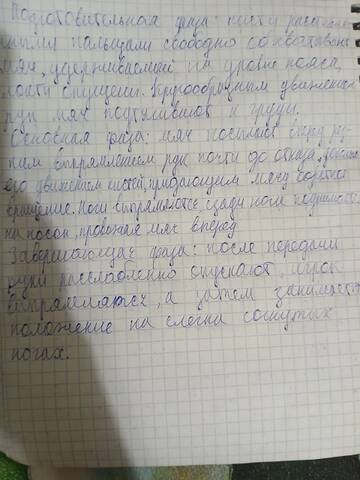 Подготовительная фаза: кисти расставлен
ными пальцами свободно обхватывают
мяч, удерживаемый на уровне пояса,
локти опущены. Кругообразным движением
рук мяч подтягивают к груди.
Основная фаза: мяч посылают вперёд рез
ким выпрямлением рук почти до отказа,
его движением кистей, придающим мячу обратное
вращение. Ноги выпрямляются, сзади нога
на носок, провожая мяч вперёд
Завершающая фаза: после передачи
руки расслабленно опускают, игрок
выпрямляется, а затем занимает
положение на слегка согнутых
ногах.